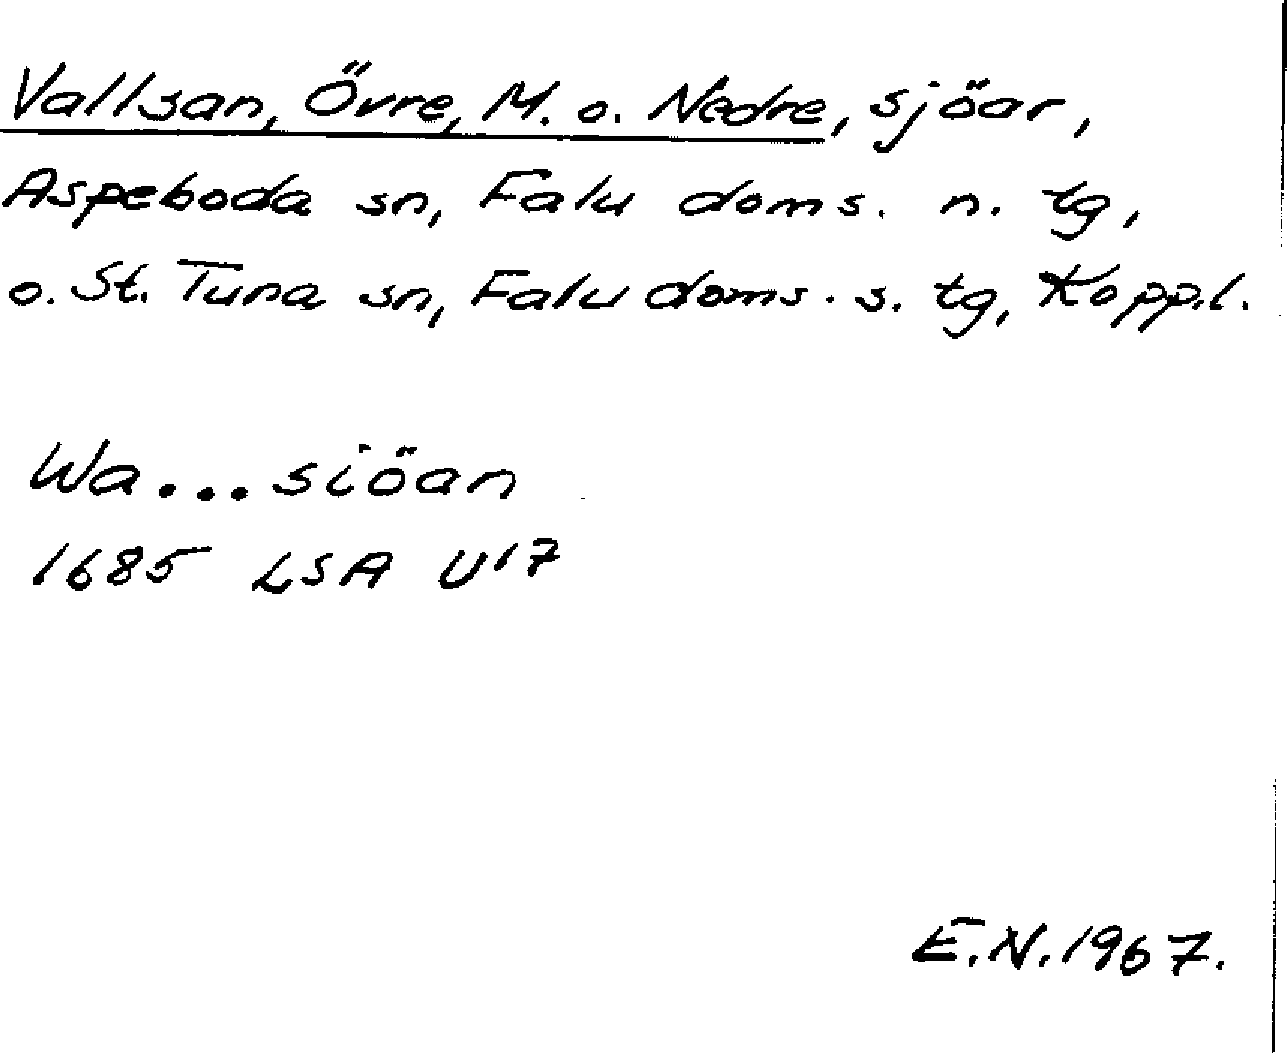 Vallsan, Övre, M. o. Nedre, sjöar,
Aspeboda sn, Falu doms. n. tg,
o. St. Tuna sn, Falu doms. s. tg, Kopp.l.
Wa...siöan
1685 LSA U17
E.N.1967.